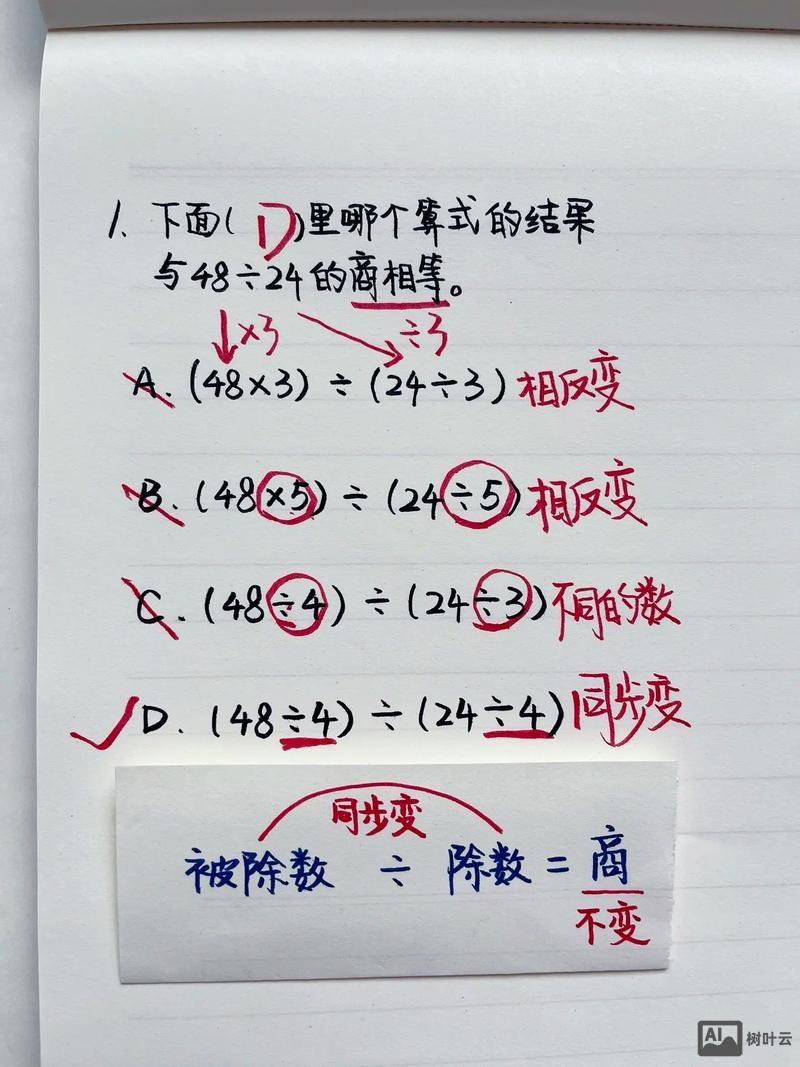 1. 下面(D)里哪个算式的结果
与48÷24的商相等。
×3 ÷3
A. (48×3) ÷ (24÷3) 相反变
B. (48×5) ÷ (24÷5) 相反变
C. (48÷4) ÷ (24÷3) 不同的数
D. (48÷4) ÷ (24÷4) 同步变
同步变
被除数 ÷ 除数 = 商
不变
AI 树叶云